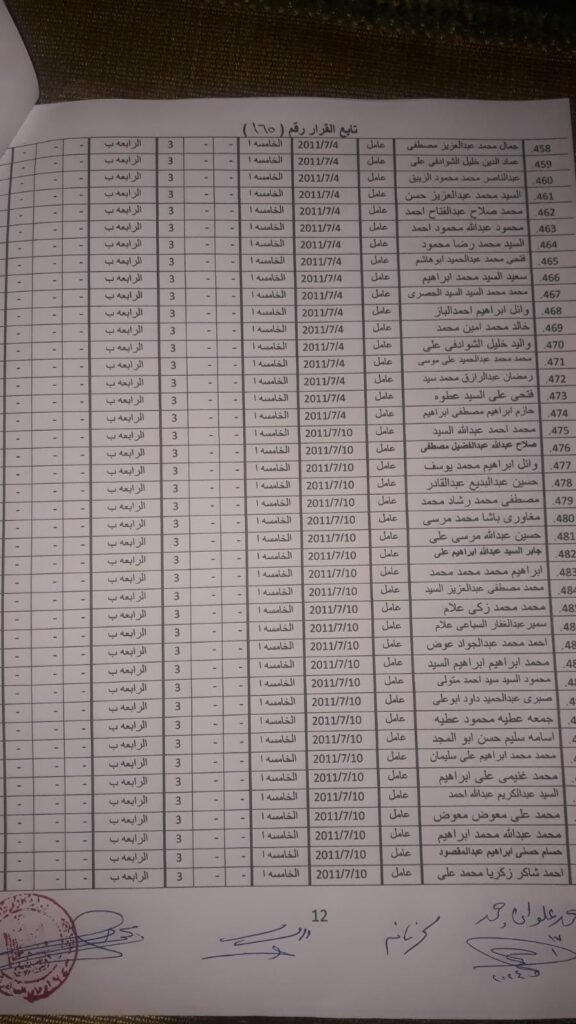 تابع القرار رقم ( ١٦٥ )
458. جمال محمد عبدالعزيز مصطفى عامل 2011/7/4 الخامسه ا - - 3 الرابعه ب - - -
459. عماد الدين خليل الشوادفى على عامل 2011/7/4 الخامسه ا - - 3 الرابعه ب - - -
460. عبدالناصر محمد محمود الزينى عامل 2011/7/4 الخامسه ا - - 3 الرابعه ب - - -
461. السيد محمد عبدالعزيز حسن عامل 2011/7/4 الخامسه ا - - 3 الرابعه ب - - -
462. محمد صلاح عبدالفتاح احمد عامل 2011/7/4 الخامسه ا - - 3 الرابعه ب - - -
463. محمود عبدالله محمود احمد عامل 2011/7/4 الخامسه ا - - 3 الرابعه ب - - -
464. السيد محمد رضا محمود عامل 2011/7/4 الخامسه ا - - 3 الرابعه ب - - -
465. فتحى محمد عبدالحميد ابوهاشم عامل 2011/7/4 الخامسه ا - - 3 الرابعه ب - - -
466. سعيد السيد محمد ابراهيم عامل 2011/7/4 الخامسه ا - - 3 الرابعه ب - - -
467. محمد محمد السيد السيد الحصرى عامل 2011/7/4 الخامسه ا - - 3 الرابعه ب - - -
468. وائل ابراهيم احمدالباز عامل 2011/7/4 الخامسه ا - - 3 الرابعه ب - - -
469. خالد محمد امين محمد عامل 2011/7/4 الخامسه ا - - 3 الرابعه ب - - -
470. واليد خليل الشوادفى على عامل 2011/7/4 الخامسه ا - - 3 الرابعه ب - - -
471. محمد محمد عبدالحميد على موسى عامل 2011/7/4 الخامسه ا - - 3 الرابعه ب - - -
472. رمضان عبدالرازق محمد سيد عامل 2011/7/4 الخامسه ا - - 3 الرابعه ب - - -
473. فتحى على السيد عطوه عامل 2011/7/4 الخامسه ا - - 3 الرابعه ب - - -
474. حازم ابراهيم مصطفى ابراهيم عامل 2011/7/4 الخامسه ا - - 3 الرابعه ب - - -
475. محمد احمد عبدالله السيد عامل 2011/7/10 الخامسه ا - - 3 الرابعه ب - - -
476. صلاح عبدالله عبدالفضيل مصطفى عامل 2011/7/10 الخامسه ا - - 3 الرابعه ب - - -
477. وائل ابراهيم محمد يوسف عامل 2011/7/10 الخامسه ا - - 3 الرابعه ب - - -
478. حسين عبدالبديع عبدالقادر عامل 2011/7/10 الخامسه ا - - 3 الرابعه ب - - -
479. مصطفى محمد رشاد محمد عامل 2011/7/10 الخامسه ا - - 3 الرابعه ب - - -
480. مغاورى باشا محمد مرسى عامل 2011/7/10 الخامسه ا - - 3 الرابعه ب - - -
481. حسين عبدالله مرسى على عامل 2011/7/10 الخامسه ا - - 3 الرابعه ب - - -
482. جابر السيد عبدالله ابراهيم على عامل 2011/7/10 الخامسه ا - - 3 الرابعه ب - - -
483. ابراهيم محمد محمد محمد عامل 2011/7/10 الخامسه ا - - 3 الرابعه ب - - -
484 محمد مصطفى عبدالعزيز السيد عامل 2011/7/10 الخامسه ا - - 3 الرابعه ب - - -
485 محمد محمد زكى علام عامل 2011/7/10 الخامسه ا - - 3 الرابعه ب - - -
48 سميرعبدالغفار السباعى علام عامل 2011/7/10 الخامسه ا - - 3 الرابعه ب - - -
48 احمد محمد عبدالجواد عوض عامل 2011/7/10 الخامسه ا - - 3 الرابعه ب - - -
48 محمد ابراهيم ابراهيم السيد عامل 2011/7/10 الخامسه ا - - 3 الرابعه ب - - -
4 محمود السيد سيد احمد متولى عامل 2011/7/10 الخامسه ا - - 3 الرابعه ب - - -
4 صبرى عبدالحميد داود ابوعلى عامل 2011/7/10 الخامسه ا - - 3 الرابعه ب - - -
4 جمعه عطيه محمود عطيه عامل 2011/7/10 الخامسه ا - - 3 الرابعه ب - - -
4 اسامه سليم حسن ابو المجد عامل 2011/7/10 الخامسه ا - - 3 الرابعه ب - - -
محمد محمد ابراهيم على سليمان عامل 2011/7/10 الخامسه ا - - 3 الرابعه ب - - -
محمد غنيمى على ابراهيم عامل 2011/7/10 الخامسه ا - - 3 الرابعه ب - - -
السيد عبدالكريم عبدالله احمد عامل 2011/7/10 الخامسه ا - - 3 الرابعه ب - - -
محمد على معوض معوض عامل 2011/7/10 الخامسه ا - - 3 الرابعه ب - - -
محمد عبدالله محمد ابراهيم عامل 2011/7/10 الخامسه ا - - 3 الرابعه ب - - -
حسام حسنى ابراهيم عبدالمقصود عامل 2011/7/10 الخامسه ا - - 3 الرابعه ب - - -
احمد شاكر زكريا محمد على عامل 2011/7/10 الخامسه ا - - 3 الرابعه ب - - -
12